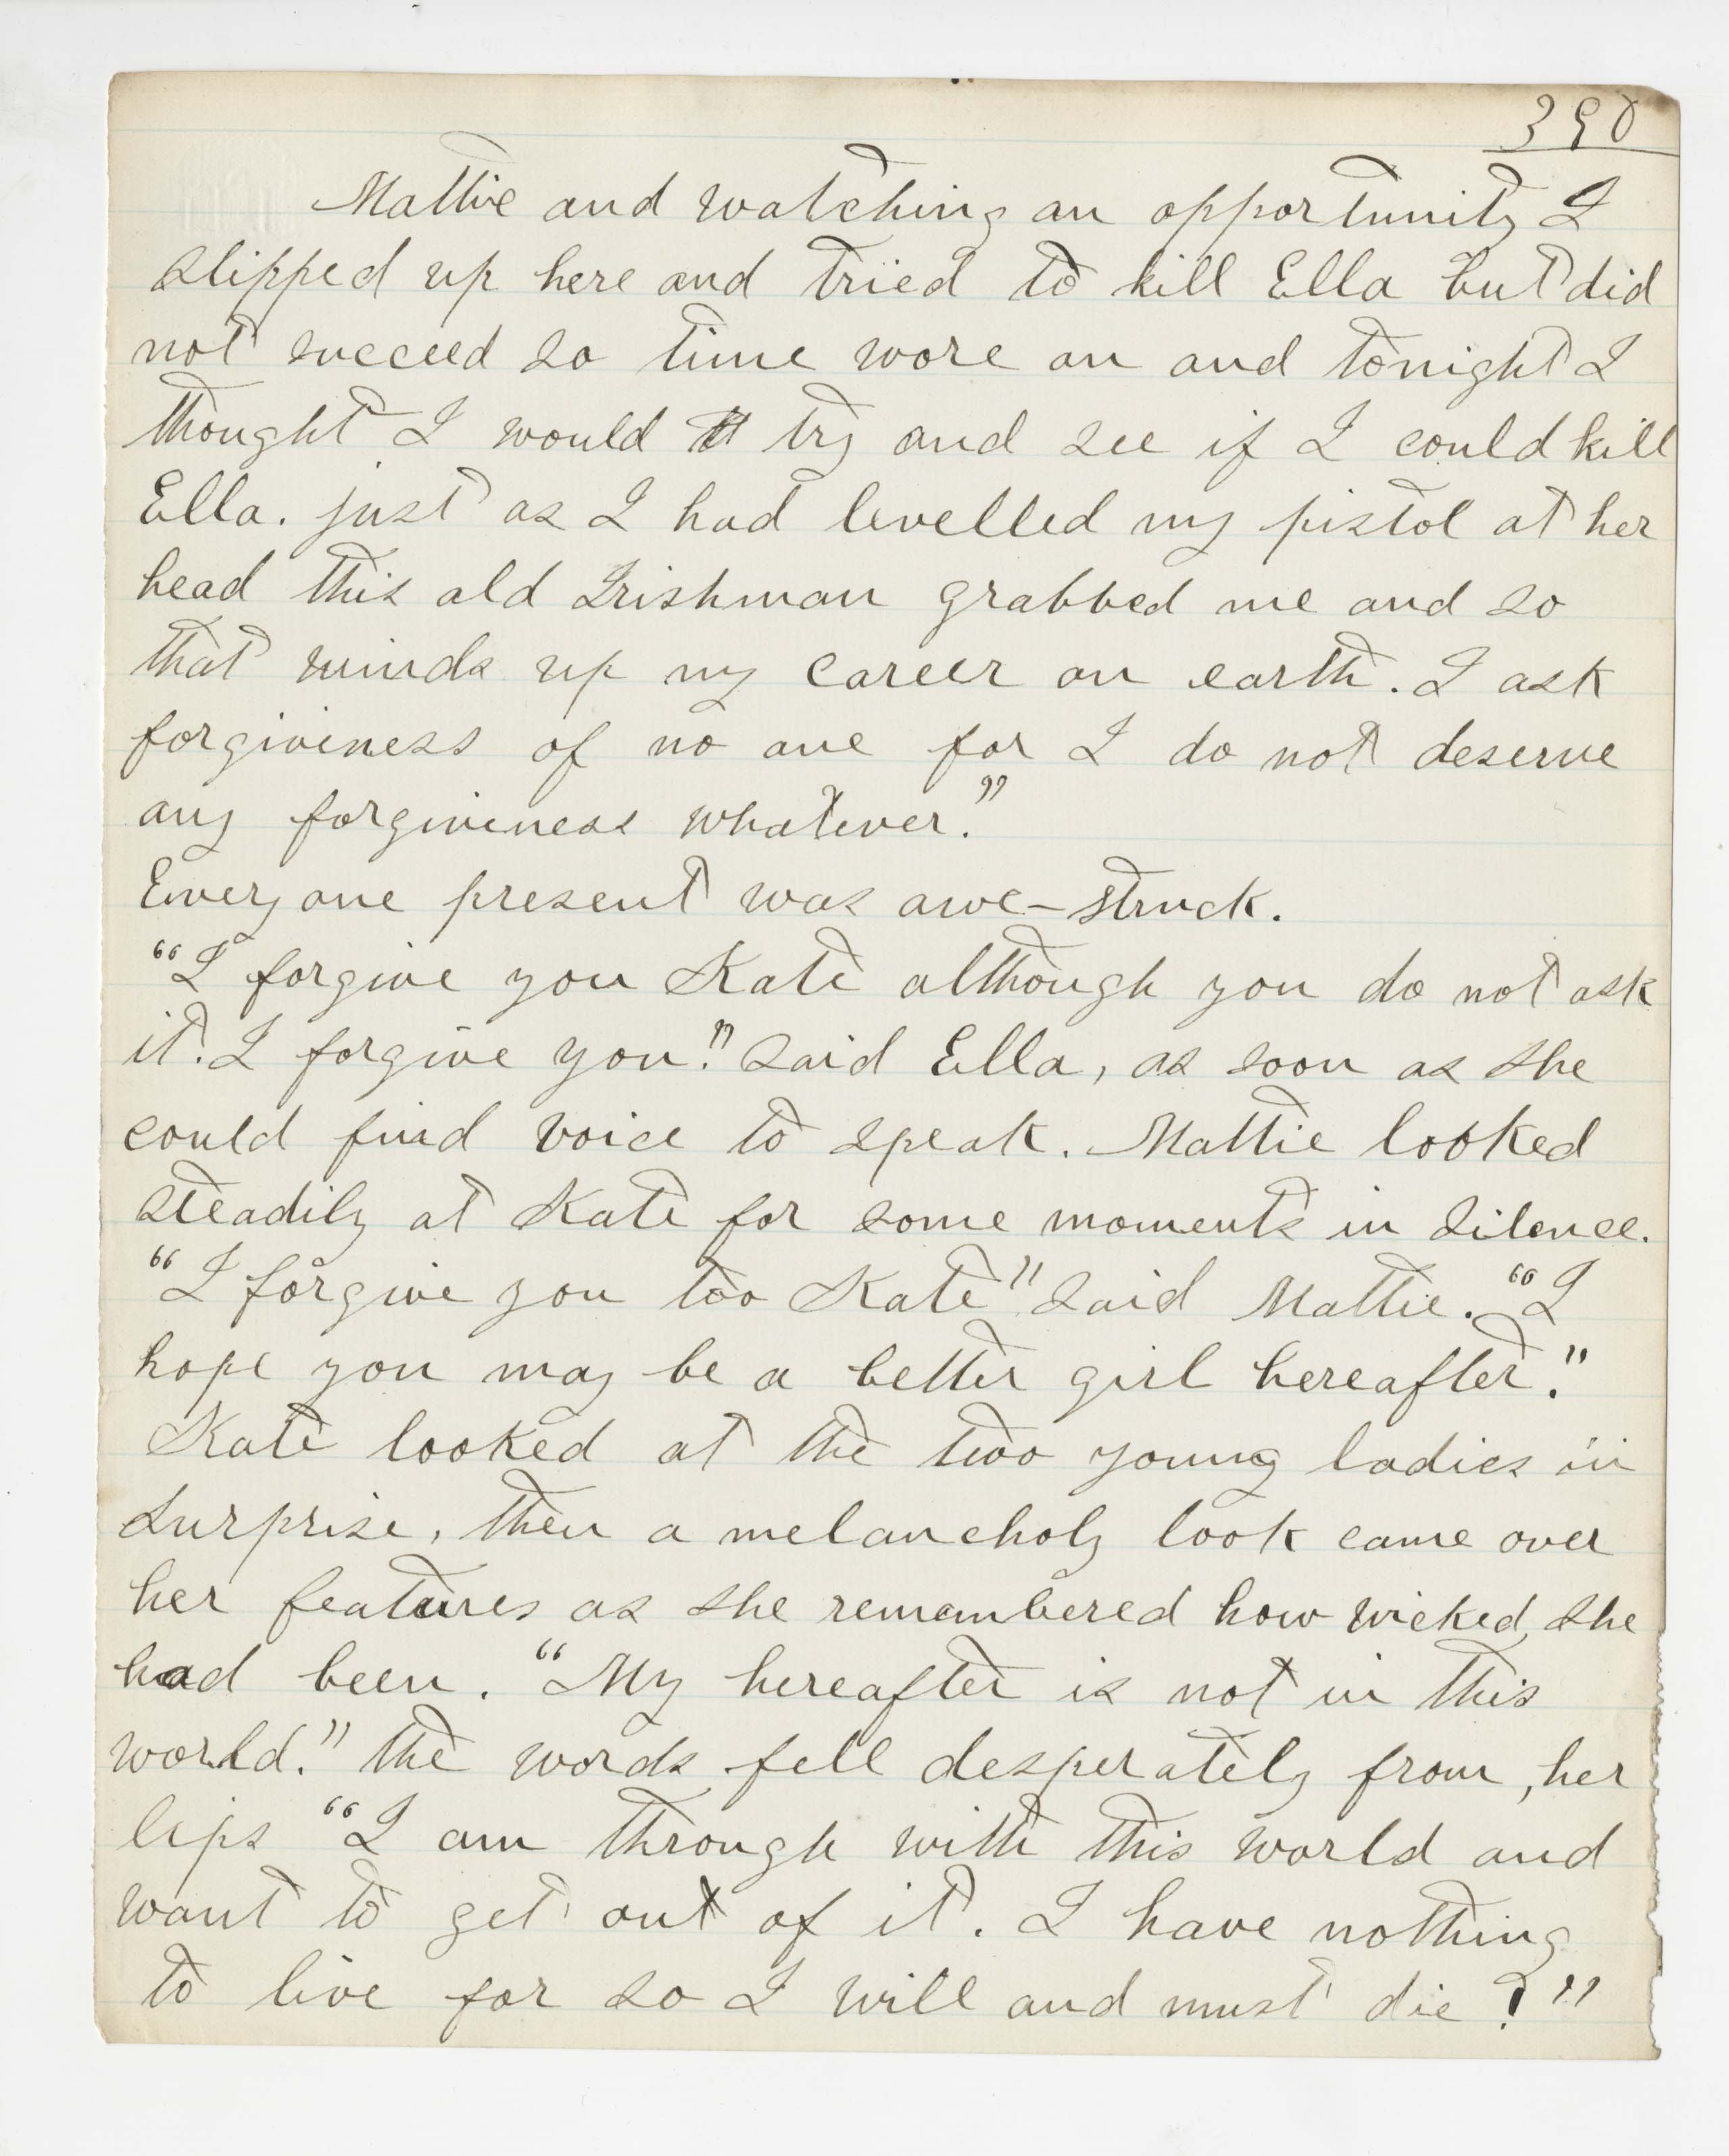 390
Mattie and watching an opportunity I
slipped up here and tried to kill Ella but did
not succeed so time wore on and tonight I
thought I would tt try and see if I could kill
Ella. just as I had levelled my pistol at her
head this old Irishman grabbed me and so
that winds up my career on earth. I ask
forgiveness of no one for I do not deserve
any forgiveness whatever."
Every one present was awe-struck.
"I forgive you Kate although you do not ask
it. I forgive you." said Ella, as soon as she
could find voice to speak. Mattie looked
steadily at Kate for some moments in silence.
"I forgive you too Kate" said Mattie. "I
hope you may be a better girl hereafter."
Kate looked at the two young ladies in
surprise, then a melancholy look came over
her features as she remembered how wicked she
had been. "My hereafter is not in this
world." the words fell desperately from, her
lips "I am through with this world and
want to get out of it. I have nothing
to live for so I will and must die?"